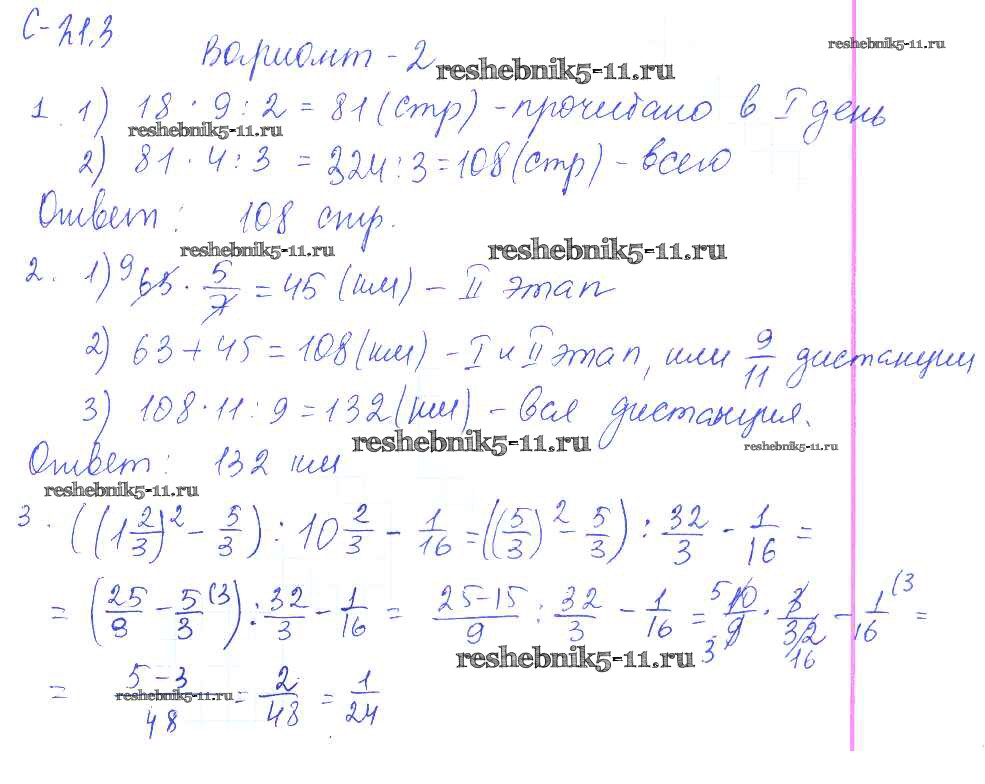 С-21.3
reshebnik5-11.ru
Вариант - 2
reshebnik5-11.ru
1. 1) 18 · 9 : 2 = 81 (стр) - прочитано в I день
reshebnik5-11.ru
2) 81 · 4 : 3 = 324 : 3 = 108 (стр) - всего
Ответ: 108 стр.
reshebnik5-11.ru
reshebnik5-11.ru
2. 1) 9 63 · 5/7 = 45 (км) - II этап
2) 63 + 45 = 108 (км) - I и II этап, или 9/11 дистанции
3) 108 · 11 : 9 = 132 (км) - вся дистанция.
reshebnik5-11.ru
reshebnik5-11.ru
Ответ: 132 км
reshebnik5-11.ru
3. ((1 2/3)² - 5/3) : 10 2/3 - 1/16 = ((5/3)² - 5/3) : 32/3 - 1/16 =
= (25/9 - 5/3 (3) : 32/3 - 1/16 = (25-15)/9 : 32/3 - 1/16 = 5 10/9 3 · 3/32 16 - 1/16 (3 =
reshebnik5-11.ru
= (5-3)/48 = 2/48 = 1/24
reshebnik5-11.ru